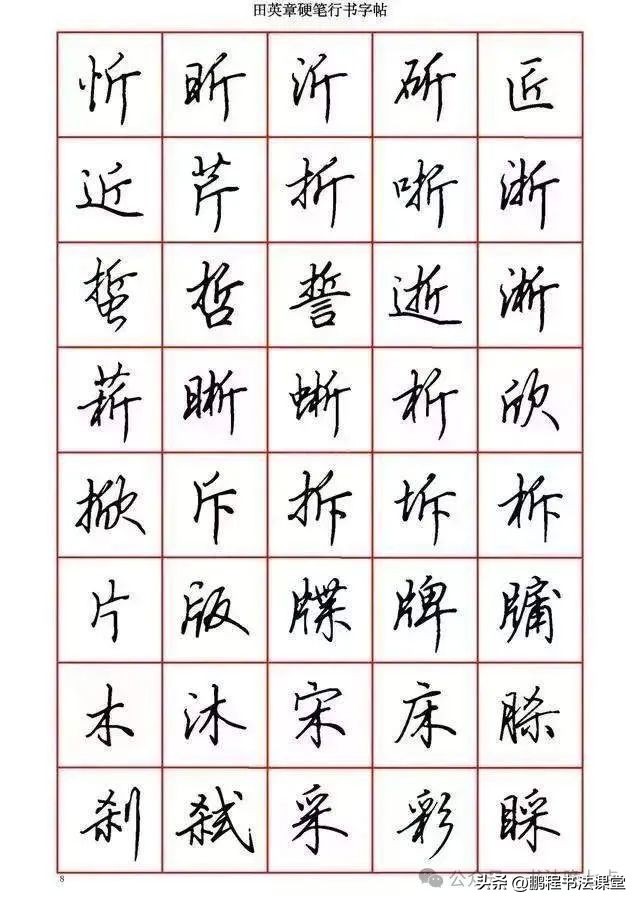 田英章硬笔行书字帖
忻昕沂斫匠
近芹折哳浙
蜇哲誓逝淅
菥晰蜥析欣
掀斥拆坼柝
片版牒牌牖
木沐宋床脎
刹弑采彩睬
8
头条@鹏程书法课堂